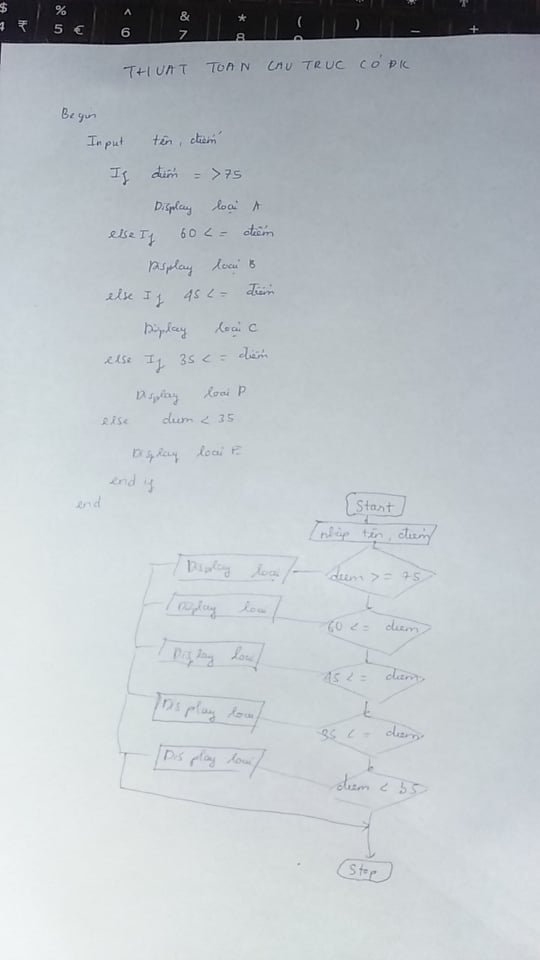 $ % ^ & * ( )
4 ₹ 5 € 6 7 8 9 - +
THUAT TOAN CAU TRUC CÓ ĐK
Begin
Input tên, điểm
If điểm = >75
Display loại A
else If 60 <= điểm
Display loại B
else If 45 <= điểm
Display loại C
else If 35 <= điểm
Display loai D
else diem < 35
Display loai E
end if
end
Start
nhập tên, điểm
Display loại
diem >= 75
Display loai
60 <= diem
Display loai
45 <= diem
Display loai
35 <= diem
Display loai
diem < 35
Stop